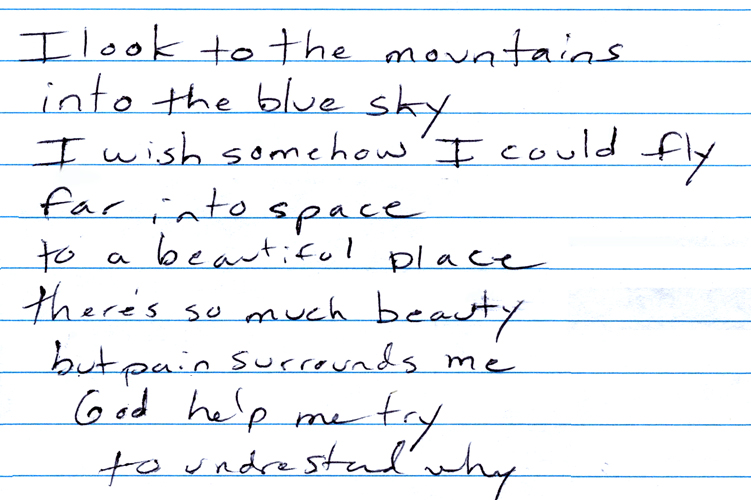 I look to the mountains
into the blue sky
I wish somehow I could fly
far into space
to a beautiful place
there's so much beauty
but pain surrounds me
God help me try
to undrestad why